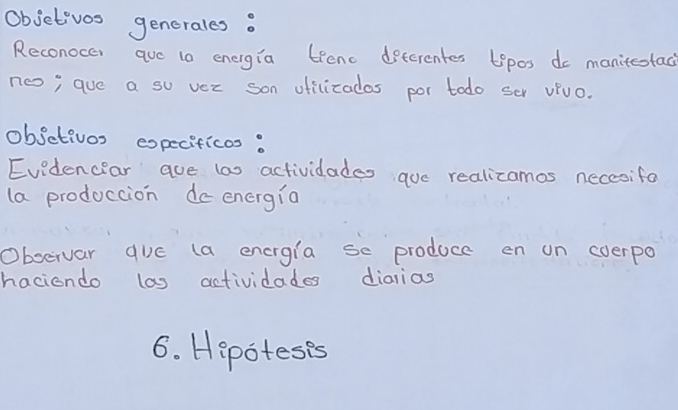 Objetivos generales :
Reconocer que la energía tiene diferentes tipos de manifestaci
nes; que a su vez son utilizados por todo ser vivo.
Objetivos específicos :
Evidenciar que las actividades que realizamos necesita
la producción de energía
Observar que la energía se produce en un cuerpo
haciendo las actividades diarias
6. Hipótesis